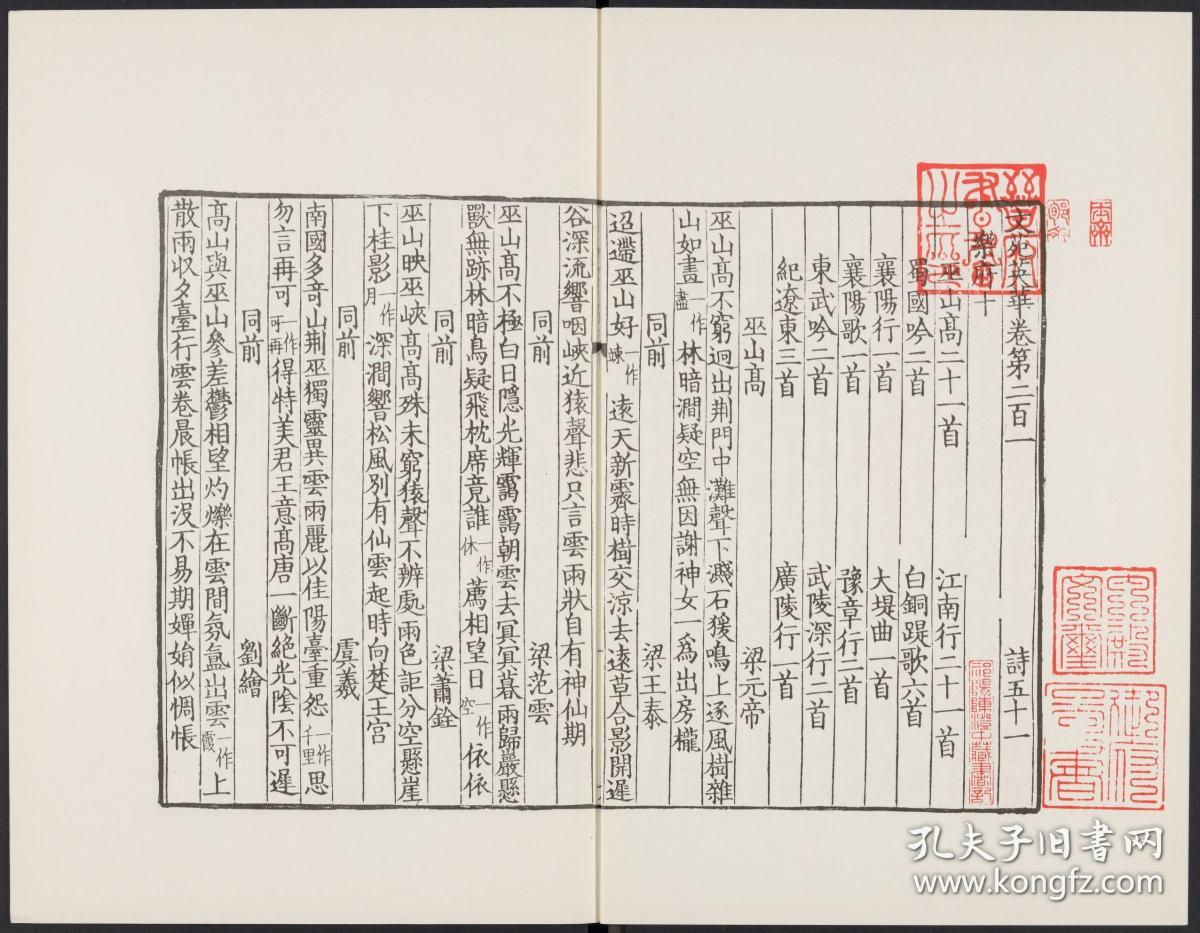 文苑英華卷第二百一　詩五十一
樂府十
巫山高二十一首　江南行二十一首
蜀國吟二首　白銅鞮歌六首
襄陽行一首　大堤曲一首
襄陽歌一首　豫章行二首
東武吟二首　武陵深行二首
紀遼東三首　廣陵行一首
巫山高　梁元帝
巫山高不窮迥出荆門中灘聲下濺石猨鳴上逐風樹雜
山如畫一作畵林暗澗疑空無因謝神女一爲出房櫳
同前　梁王泰
迢遰巫山好一作竦遠天新霽時樹交涼去遠草合影開遲
谷深流響咽峽近猿聲悲只言雲雨狀自有神仙期
同前　梁范雲
巫山高不極白日隱光輝靄靄朝雲去冥冥暮雨歸巖懸
獸無跡林暗鳥疑飛枕席竟誰一作休薦相望日一作空依依
同前　梁蕭銓
巫山映巫峽高高殊未窮猿聲不辨處雨色詎分空懸崖
下桂影一作月深澗響松風別有仙雲起時向楚王宫
同前　虞羲
南國多竒山荆巫獨靈異雲雨麗以佳陽臺重怨一作千里思
勿言再可一作可再得特美君王意高唐一斷絶光陰不可遲
同前　劉繪
高山與巫山參差鬱相望灼爍在雲間氛氲出雲一作霞上
散雨收夕臺行雲卷晨帳出沒不易期嬋娟似惆悵
祁陽陳澄中藏書記
孔夫子旧书网
www.kongfz.com